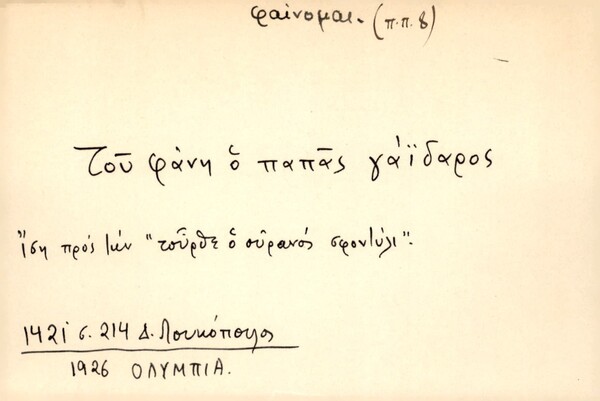 φαίνομαι. (π.π. 8)
Τοῦ φάνη ὁ παπᾶς γάϊδαρος
Ἴση πρός τήν "τοὖρθε ὁ οὐρανός σφοντύλι".
1421 σ. 214 Δ. Λουκόπουλος
1926 ΟΛΥΜΠΙΑ.